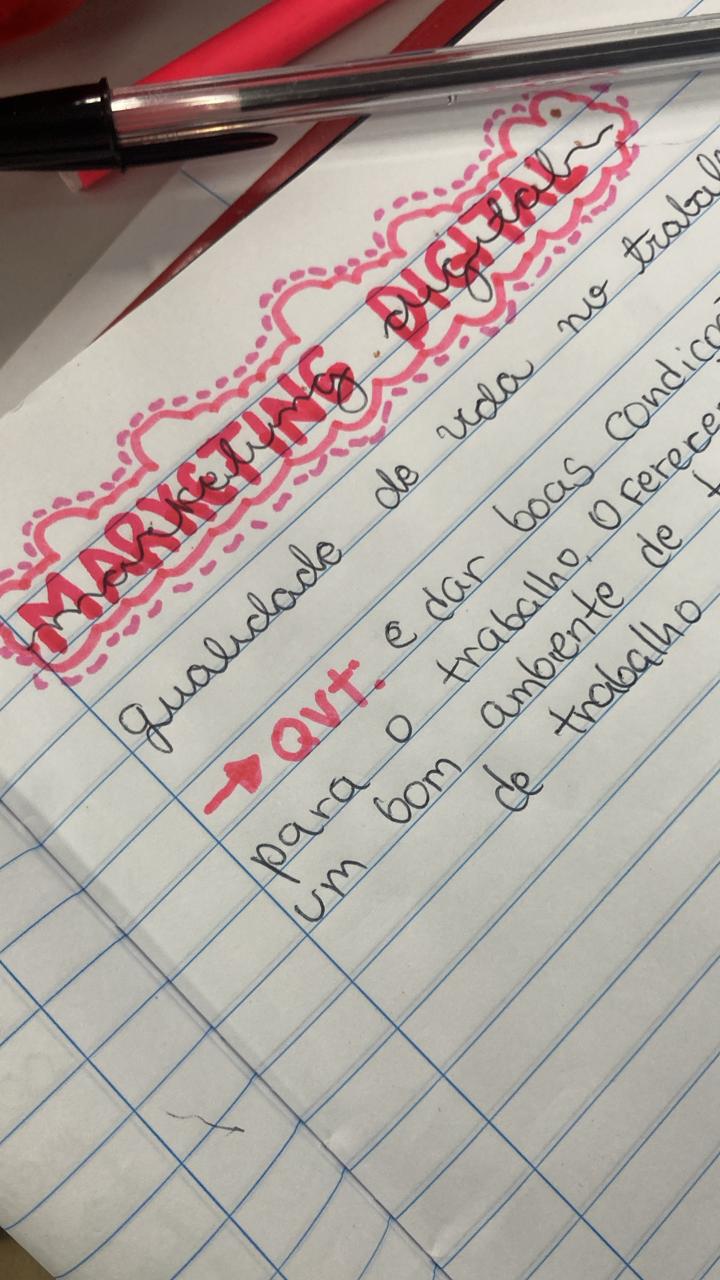 MARKETING DIGITAL
marketing digital
qualidade de vida no trabal
→ QVT. e dar boas condiço
para o trabalho. Oferece
um bom ambiente de t
de trabalho